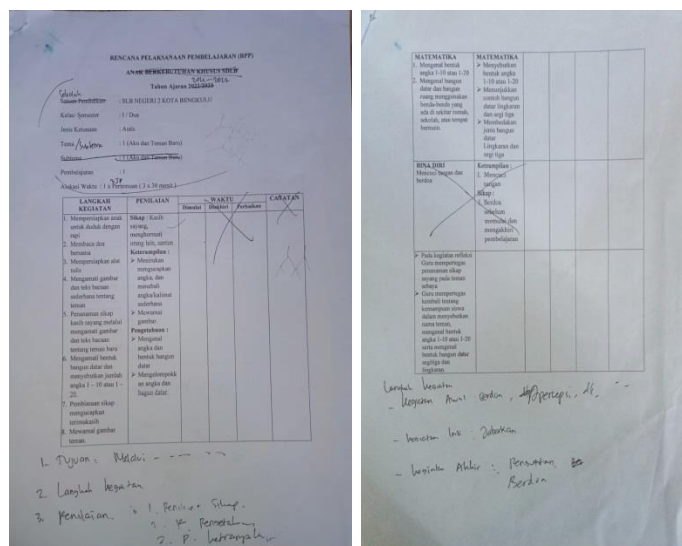 RENCANA PELAKSANAAN PEMBELAJARAN (RPP)
ANAK BERKEBUTUHAN KHUSUS SDLB
Tahun Ajaran
Sekolah
Satuan Pendidikan : SLB NEGERI 2 KOTA BENGKULU
Kelas/ Semester : I / Dua
Jenis Ketunaan : Autis
Tema : 1 (Aku dan Teman Baru)
Subtema : 1 (Aku dan Teman Baru)
Pembelajaran : 1
Alokasi Waktu : 1 x Pertemuan ( 3 x 30 menit )
LANGKAH KEGIATAN PENILAIAN WAKTU CATATAN
Dimulai Perbaikan
1. Mempersiapkan anak
untuk duduk dengan
rapi
2. Membaca doa
bersama
3. Mempersiapkan alat
tulis
4. Mengamati gambar
dan teks bacaan
sederhana tentang
teman
5. Penanaman sikap
kasih sayang melalui
mengamati gambar
dan teks bacaan
tentang teman baru
6. Mengamati bentuk
bangun datar dan
menyebutkan jumlah
angka 1 - 10 atau 1 -
20.
7. Pembiasaan sikap
mengucapkan
terimakasih
8. Mewarnai gambar
teman.
Sikap : Kasih
sayang,
menghormati
orang lain, santun
Keterampilan :
➢ Menirukan
mengucapkan
angka, dan
menebali
angka/kalimat
sederhana
➢ Mewarnai
gambar.
Pengetahuan :
➢ Mengenal
angka dan
bentuk bangun
datar
➢ Mengelompokk
an angka dan
bagun datar.
1. Tujuan,
2. Langkah kegiatan
3. Penilaian
MATEMATIKA
1. Mengenal bentuk
angka 1-10 atau 1-20
2. Mengenal bangun
datar dan bangun
ruang menggunakan
benda-benda yang
ada di sekitar rumah,
sekolah, atau tempat
bermain
MATEMATIKA
➢ Menyebutkan
bentuk angka
1-10 atau 1-20
➢ Menunjukkan
contoh bangun
datar lingkaran
dan segi tiga
➢ Membedakan
jenis bangun
datar
Lingkaran dan
segi tiga
BINA DIRI
Mencuci tangan dan
berdoa
Ketrampilan :
1. Mencuci
tangan
Sikap :
1. Berdoa
sebelum
memulai dan
mengakhiri
pembelajaran
➢ Pada kegiatan refleksi
Guru mempertegas
penanaman sikap
sayang pada teman
sebaya
➢ Guru mempertegas
kembali tentang
kemampuan siswa
dalam menyebutkan
nama teman,
mengenal bentuk
angka 1-10 atau 1-20
serta mengenal
bentuk bangun datar
segitiga dan
lingkaran
Langkah kegiatan
- Kegiatan Awal berdoa,
- kegiatan Inti : Jabarkan
- kegiatan Akhir :
Berdoa